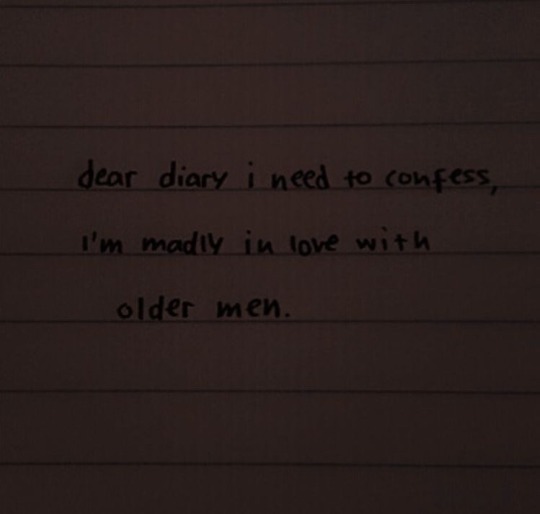 dear diary i need to confess,
i'm madly in love with
older men.